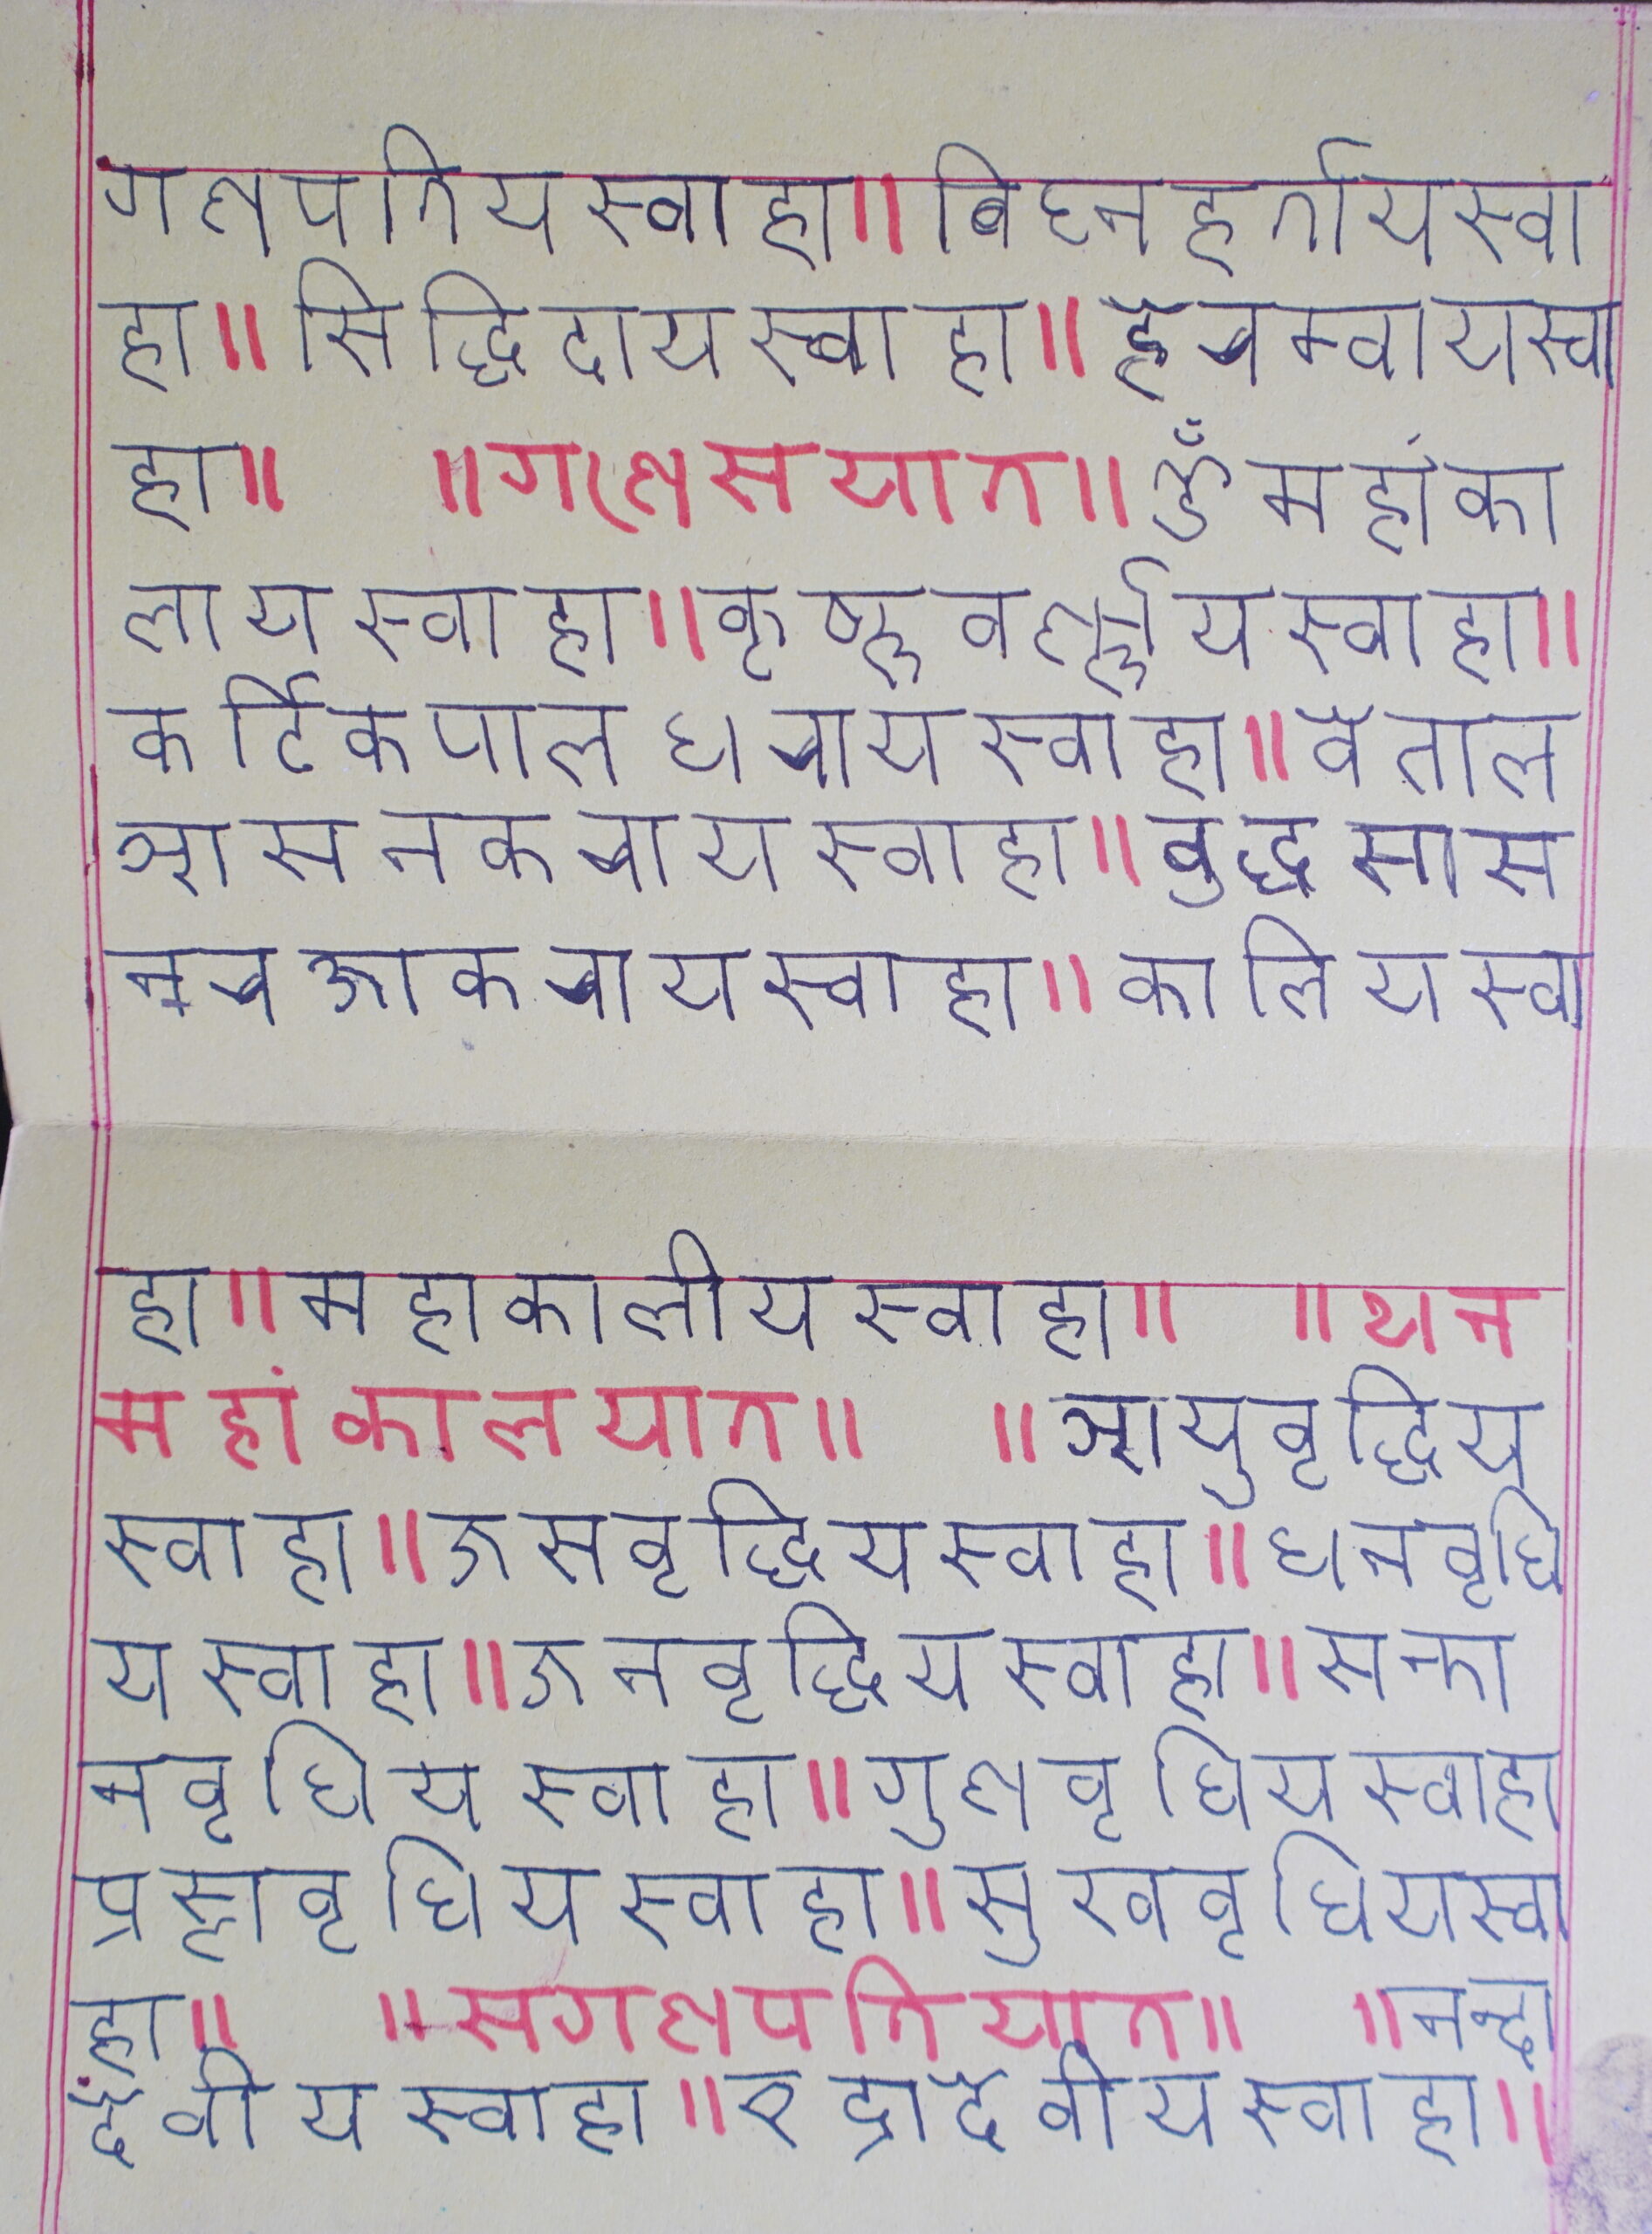 गणपतियस्वाहा॥बिघ्नहर्तायस्वा
हा॥सिद्धिदायस्वाहा॥हेरम्वायस्वा
हा॥ ॥गणेसयात॥ॐमहांका
लायस्वाहा॥कृष्णवर्ण्णायस्वाहा॥
कर्टिकपालधारायस्वाहा॥वेताल
आसनकरायस्वाहा॥बुद्धसास
नरक्षाकरायस्वाहा॥कालियस्वा
हा॥महाकालीयस्वाहा॥ ॥थन
महांकालयात॥ ॥आयुवृद्धिय
स्वाहा॥जसवृद्धियस्वाहा॥धनवृधि
यस्वाहा॥जनवृद्धियस्वाहा॥सन्ता
नवृधियस्वाहा॥गुणवृधियस्वाहा
प्रज्ञावृधियस्वाहा॥सुखवृधियस्वा
हा॥ ॥सगणपतियात॥ ॥नन्दा
देवीयस्वाहा॥इद्रादेवीयस्वाहा॥